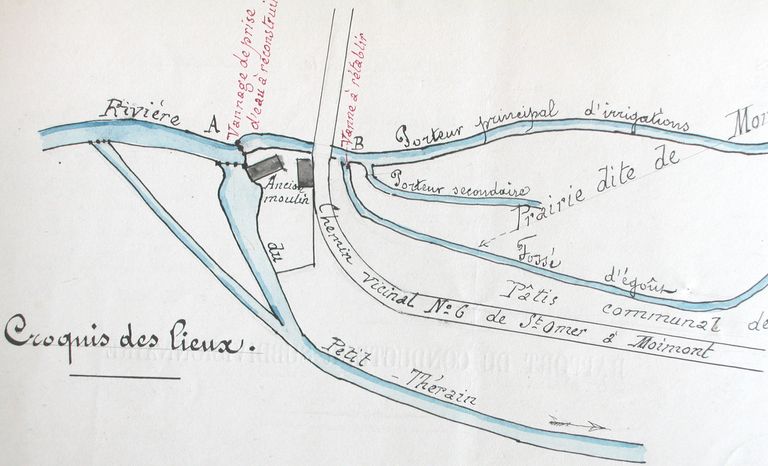 Vannage de prise
d'eau à réconstruire
Vanne à rétablir
Rivière
A
B
Porteur principal d'irrigations
Porteur secondaire
Prairie dite de
Ancien
moulin
du
Fossé d'égout
Pâtis communal de
Chemin vicinal Nº 6 de St Omer à Moimont
Croquis des lieux.
Petit - Thérain